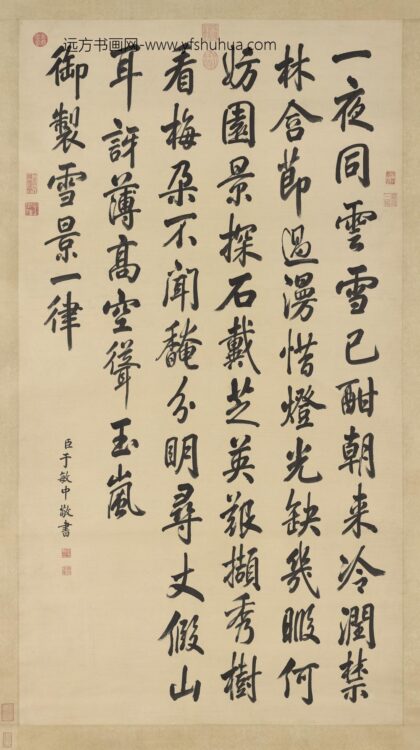 远方书画网-www.yfshuhua.com
一夜同雲雪已酣朝来冷潤禁
林含節過漫惜燈光缺幾暇何
妨園景探石戴芝英艱擷秀樹
看梅朵不聞馣分明尋丈假山
耳訝薄高空聳玉嵐
御製雪景一律
臣于敏中敬書